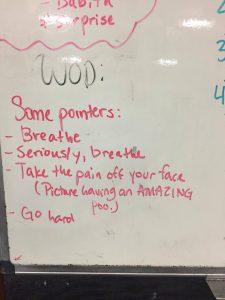 - Babita
& Surprise
WOD:
Some pointers:
- Breathe
- Seriously, breathe
- Take the pain off your face
(Picture having an AMAZING
poo.)
- Go hard
3
4